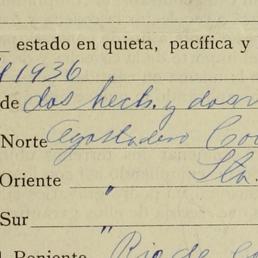 estado en quieta, pacífica y
1936
de dos hect. y
Norte Agostadero
Oriente " Sta.
Sur "
Poniente Rio de